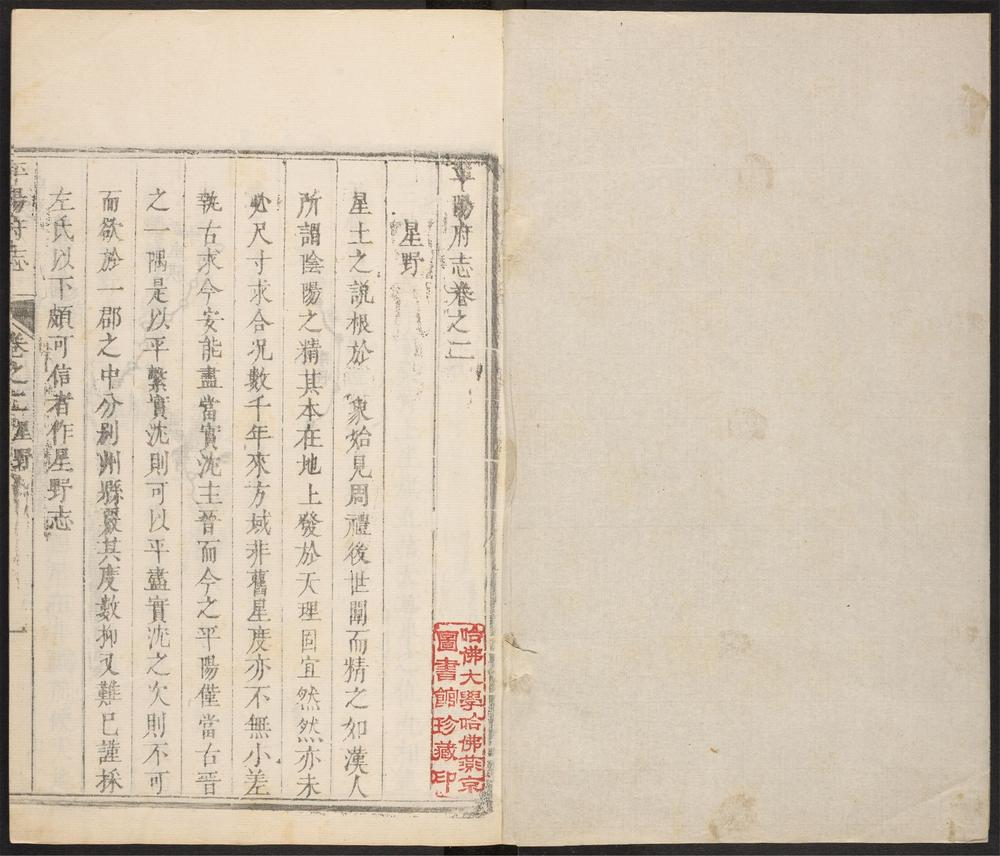 平陽府志卷之二
星野
星土之說根於 象始見周禮後世闡而精之如漢人
所謂陰陽之精其本在地上發於天理固宜然然亦未
必尺寸求合况數千年來方域非舊星度亦不無小差
執古求今安能盡當實沈主晉而今之平陽僅當古晉
之一隅是以平繫實沈則可以平盡實沈之次則不可
而欲於一郡之中分别州縣嚴其度數抑又難已謹採
左氏以下頗可信者作星野志
平陽府志
卷之二 星野
一
哈佛大學哈佛燕京
圖書館珍藏印